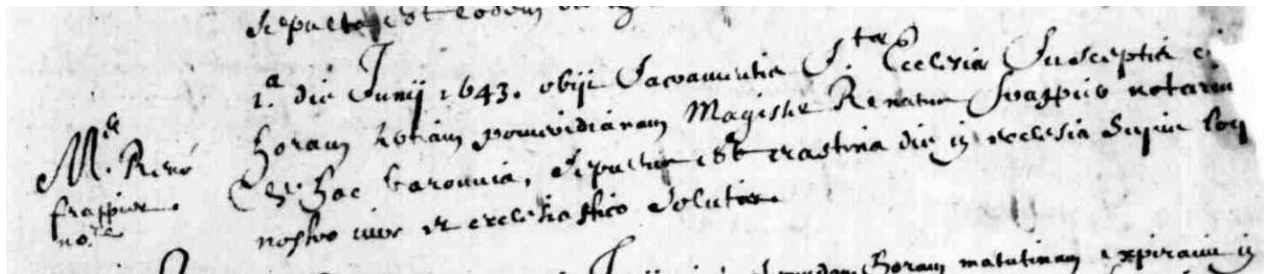 sepulta est eodem die
1.a die Junij 1643. obijt Sacramentis Stæ Ecclesiæ Susceptis
M.e René horam nonam pomeridianam Magister Renatus frappier notarius
frappier hac baronnia, sepultus est crastina die in ecclesia
no.re nostro iure et ecclesiastico soluto
horam matutinam expiravit in